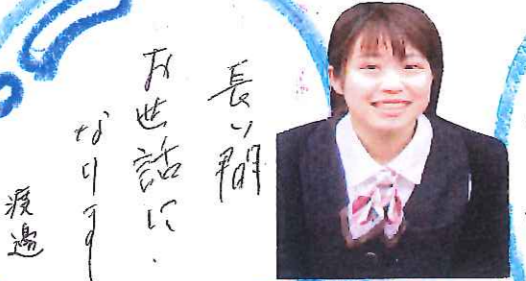 長い間
お世話に
なります
渡邉